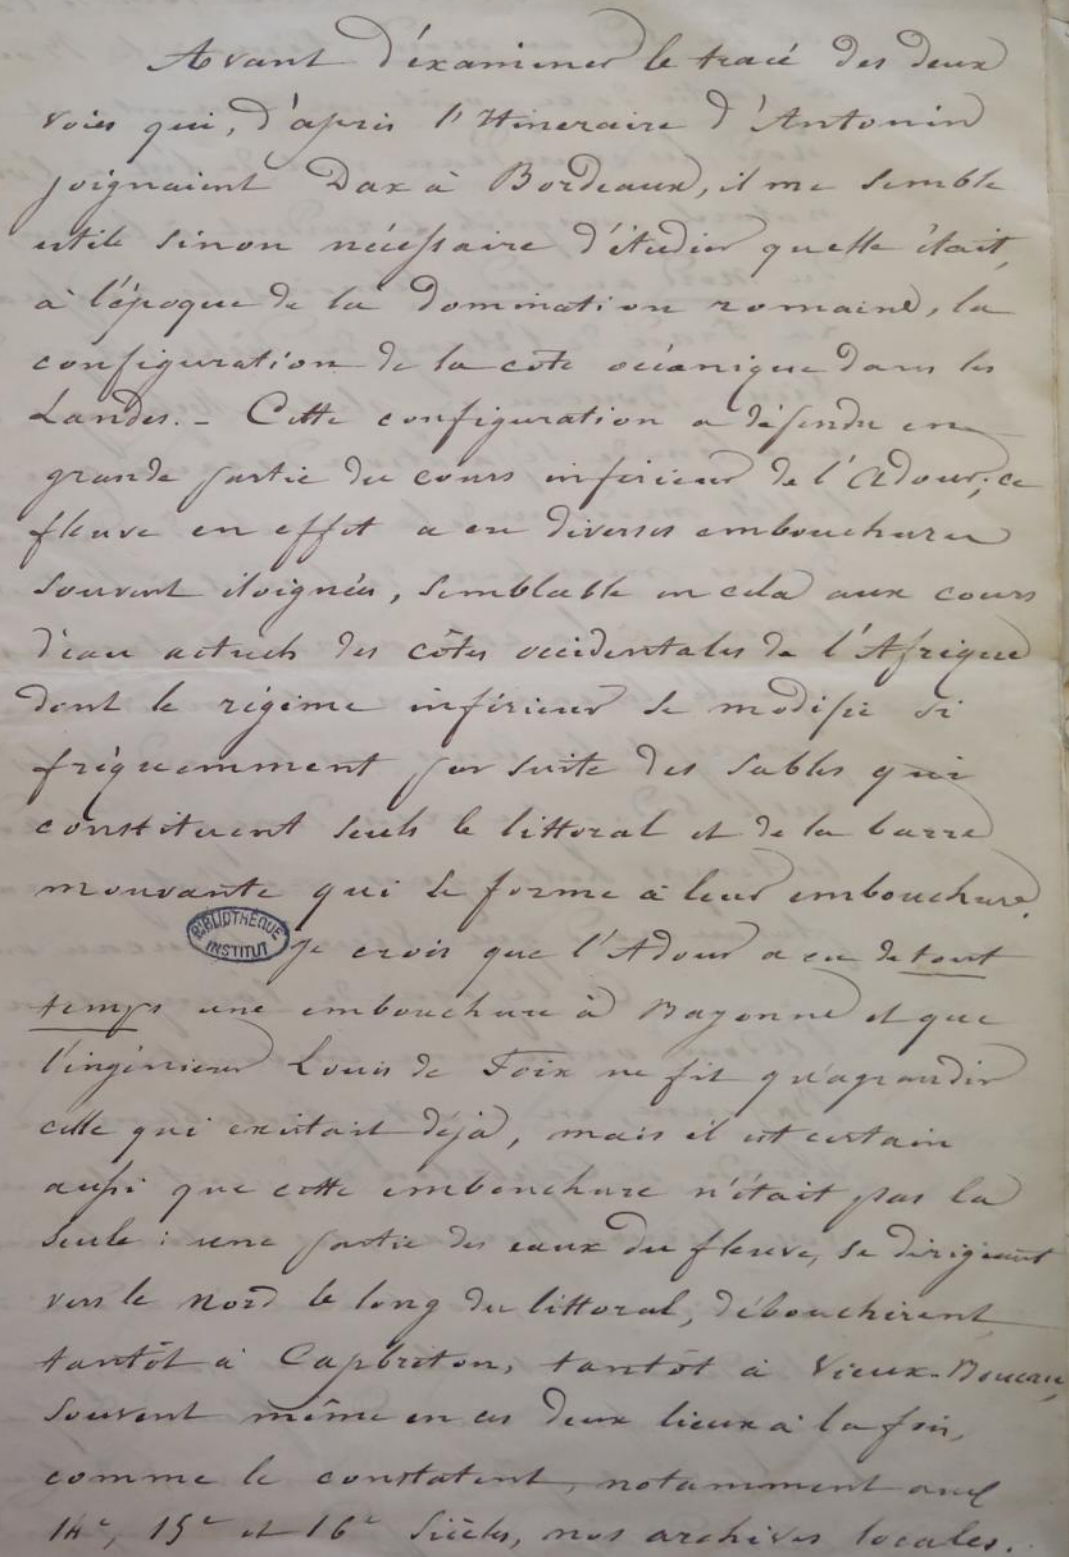 Avant d'examiner le tracé des deux
voies qui, d'après l'Itineraire d'Antonin
joignaient Dax à Bordeaux, il me semble
utile sinon nécessaire d'étudier quelle était,
à l'époque de la domination romaine, la
configuration de la côte océanique dans les
Landes. - Cette configuration a dépendu en
grande partie du cours inférieur de l'Adour; ce
fleuve en effet a eu diverses embouchures
souvent éloignées, semblable en cela aux cours
d'eau actuels des côtes occidentales de l'Afrique
dont le régime inférieur se modifie si
fréquemment par suite des sables qui
constituent seuls le littoral et de la barre
mouvante qui se forme à leur embouchure.
BIBLIOTHÈQUE
INSTITUT
Je crois que l'Adour a eu de tout
temps une embouchure à Bayonne et que
l'ingénieur Louis de Foix ne fit qu'agrandir
celle qui existait déjà, mais il est certain
aussi que cette embouchure n'était pas la
seule : une partie des eaux du fleuve, se dirigeant
vers le Nord le long du littoral, débouchèrent
tantôt à Capbreton, tantôt à Vieux-Boucau,
souvent même en ces deux lieux à la fois,
comme le constatent, notamment aux
14e, 15e et 16e siècles, nos archives locales.